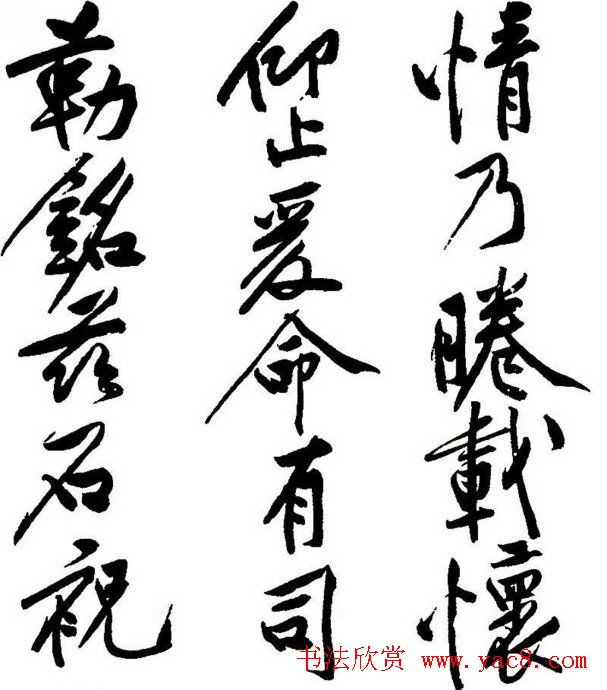 情乃睠載懷
仰止爰命有司
勒銘茲石祝
书法欣赏 www.yac8.com